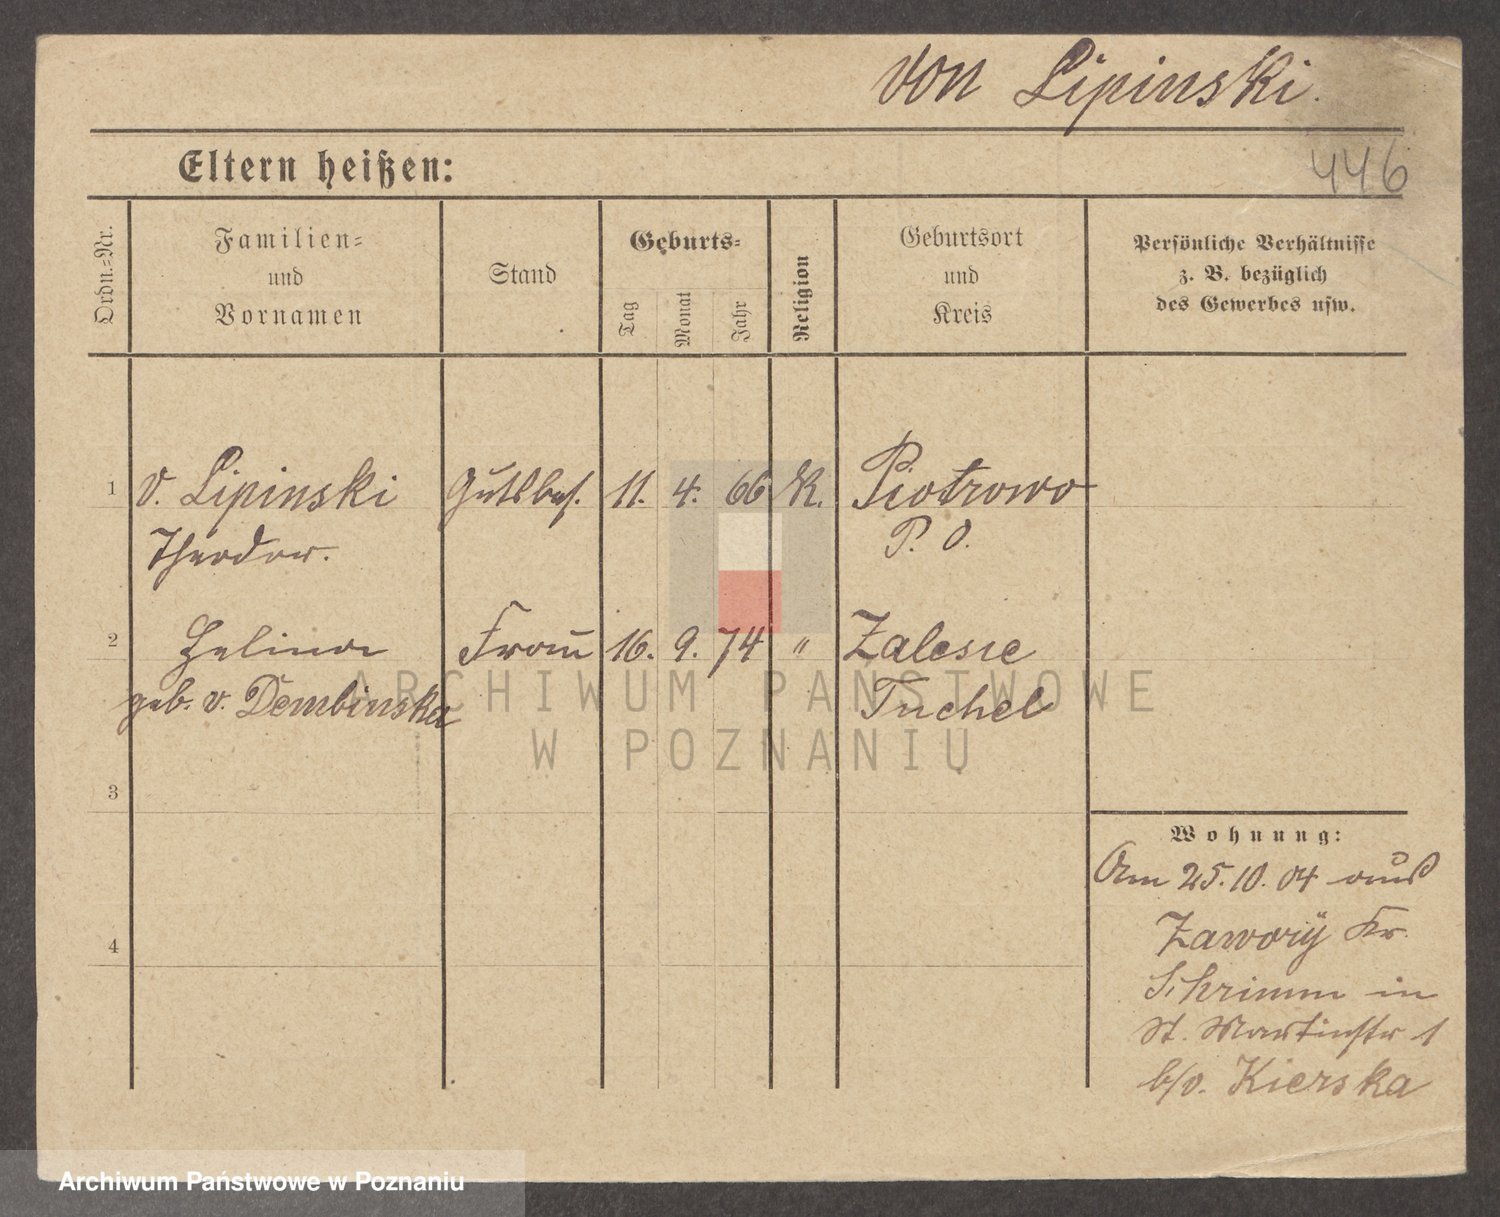 von Lipinski.
Eltern heißen:
446
Ordn.-Nr.
Familien-
und
Vornamen
Stand
Geburts-
Tag
Monat
Jahr
Religion
Geburtsort
und
Kreis
Persönliche Verhältnisse
z. B. bezüglich
des Gewerbes usw.
1 v. Lipinski Gutsbes. 11. 4. 66 K. Piotrowo
Theodor. P. O.
2 Helina Frau 16. 9. 74 " Zalesie
geb. v. Dembinska Tuchel
ARCHIWUM PAŃSTWOWE
W POZNANIU
3
Wohnung:
Am 25.10.04 aus
Zawory Kr.
4
Schrimm in
St. Martinstr 1
b/v. Kierska
Archiwum Państwowe w Poznaniu